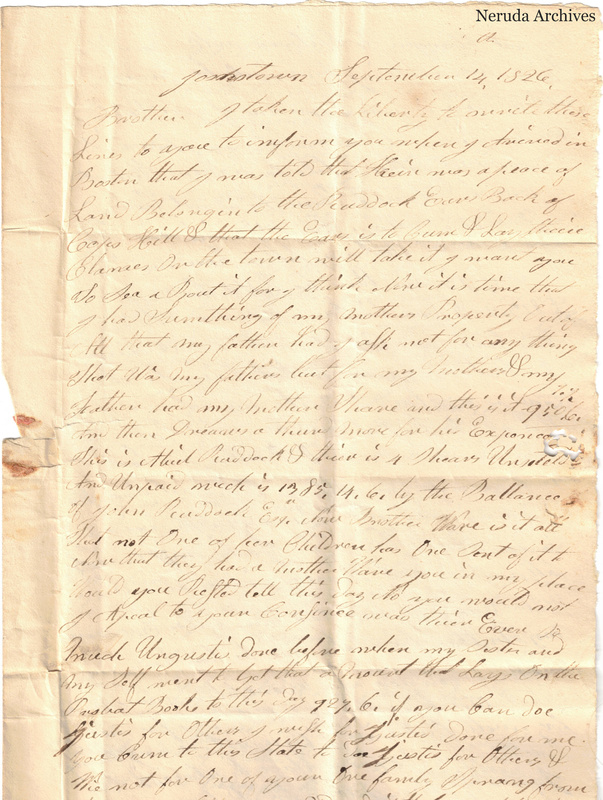 Neruda Archives
a.
Johnstown September 14, 1826,
Brother I taken the Liberty to write these
Lines to you to inform you when I arived in
Boston that I was told that their was a peace of
Land Belongin to the Ruddock Ears Back of
Cops Hill & that the Ears is to Cum & Lay their
Clames Or the town will take it I want you
to See a Bout it for I think Now it is time that
I had Sumthing of my mothers Property
All that my father had I ask not for any thing
that Was my fathers but for my mothers & my
father had my Mother Sheare and this is it
And then Drawed a there more for his Expence
This is Abiel Ruddock & their is 4 Shears Unsetled
And Unpaid wich is 1385,14,6, by the Ballance
of John Ruddock Esqr Now Brother Ware is it all
that not One of her Children has One Sent of it
Now that they had a mother Ware you in my place
Would you Rested till this Day No you would not
I Apeal to your Confince was thier Ever So
much Ungustis done before when my Sister and
my Self went to Get that amount that Lays On the
Probat Books to this Day if you Can doe
Gustis for Others I wish for Gustis done for me
You Cum to this State to Gustis for Others &
Whi not for One of your One family Sprang from